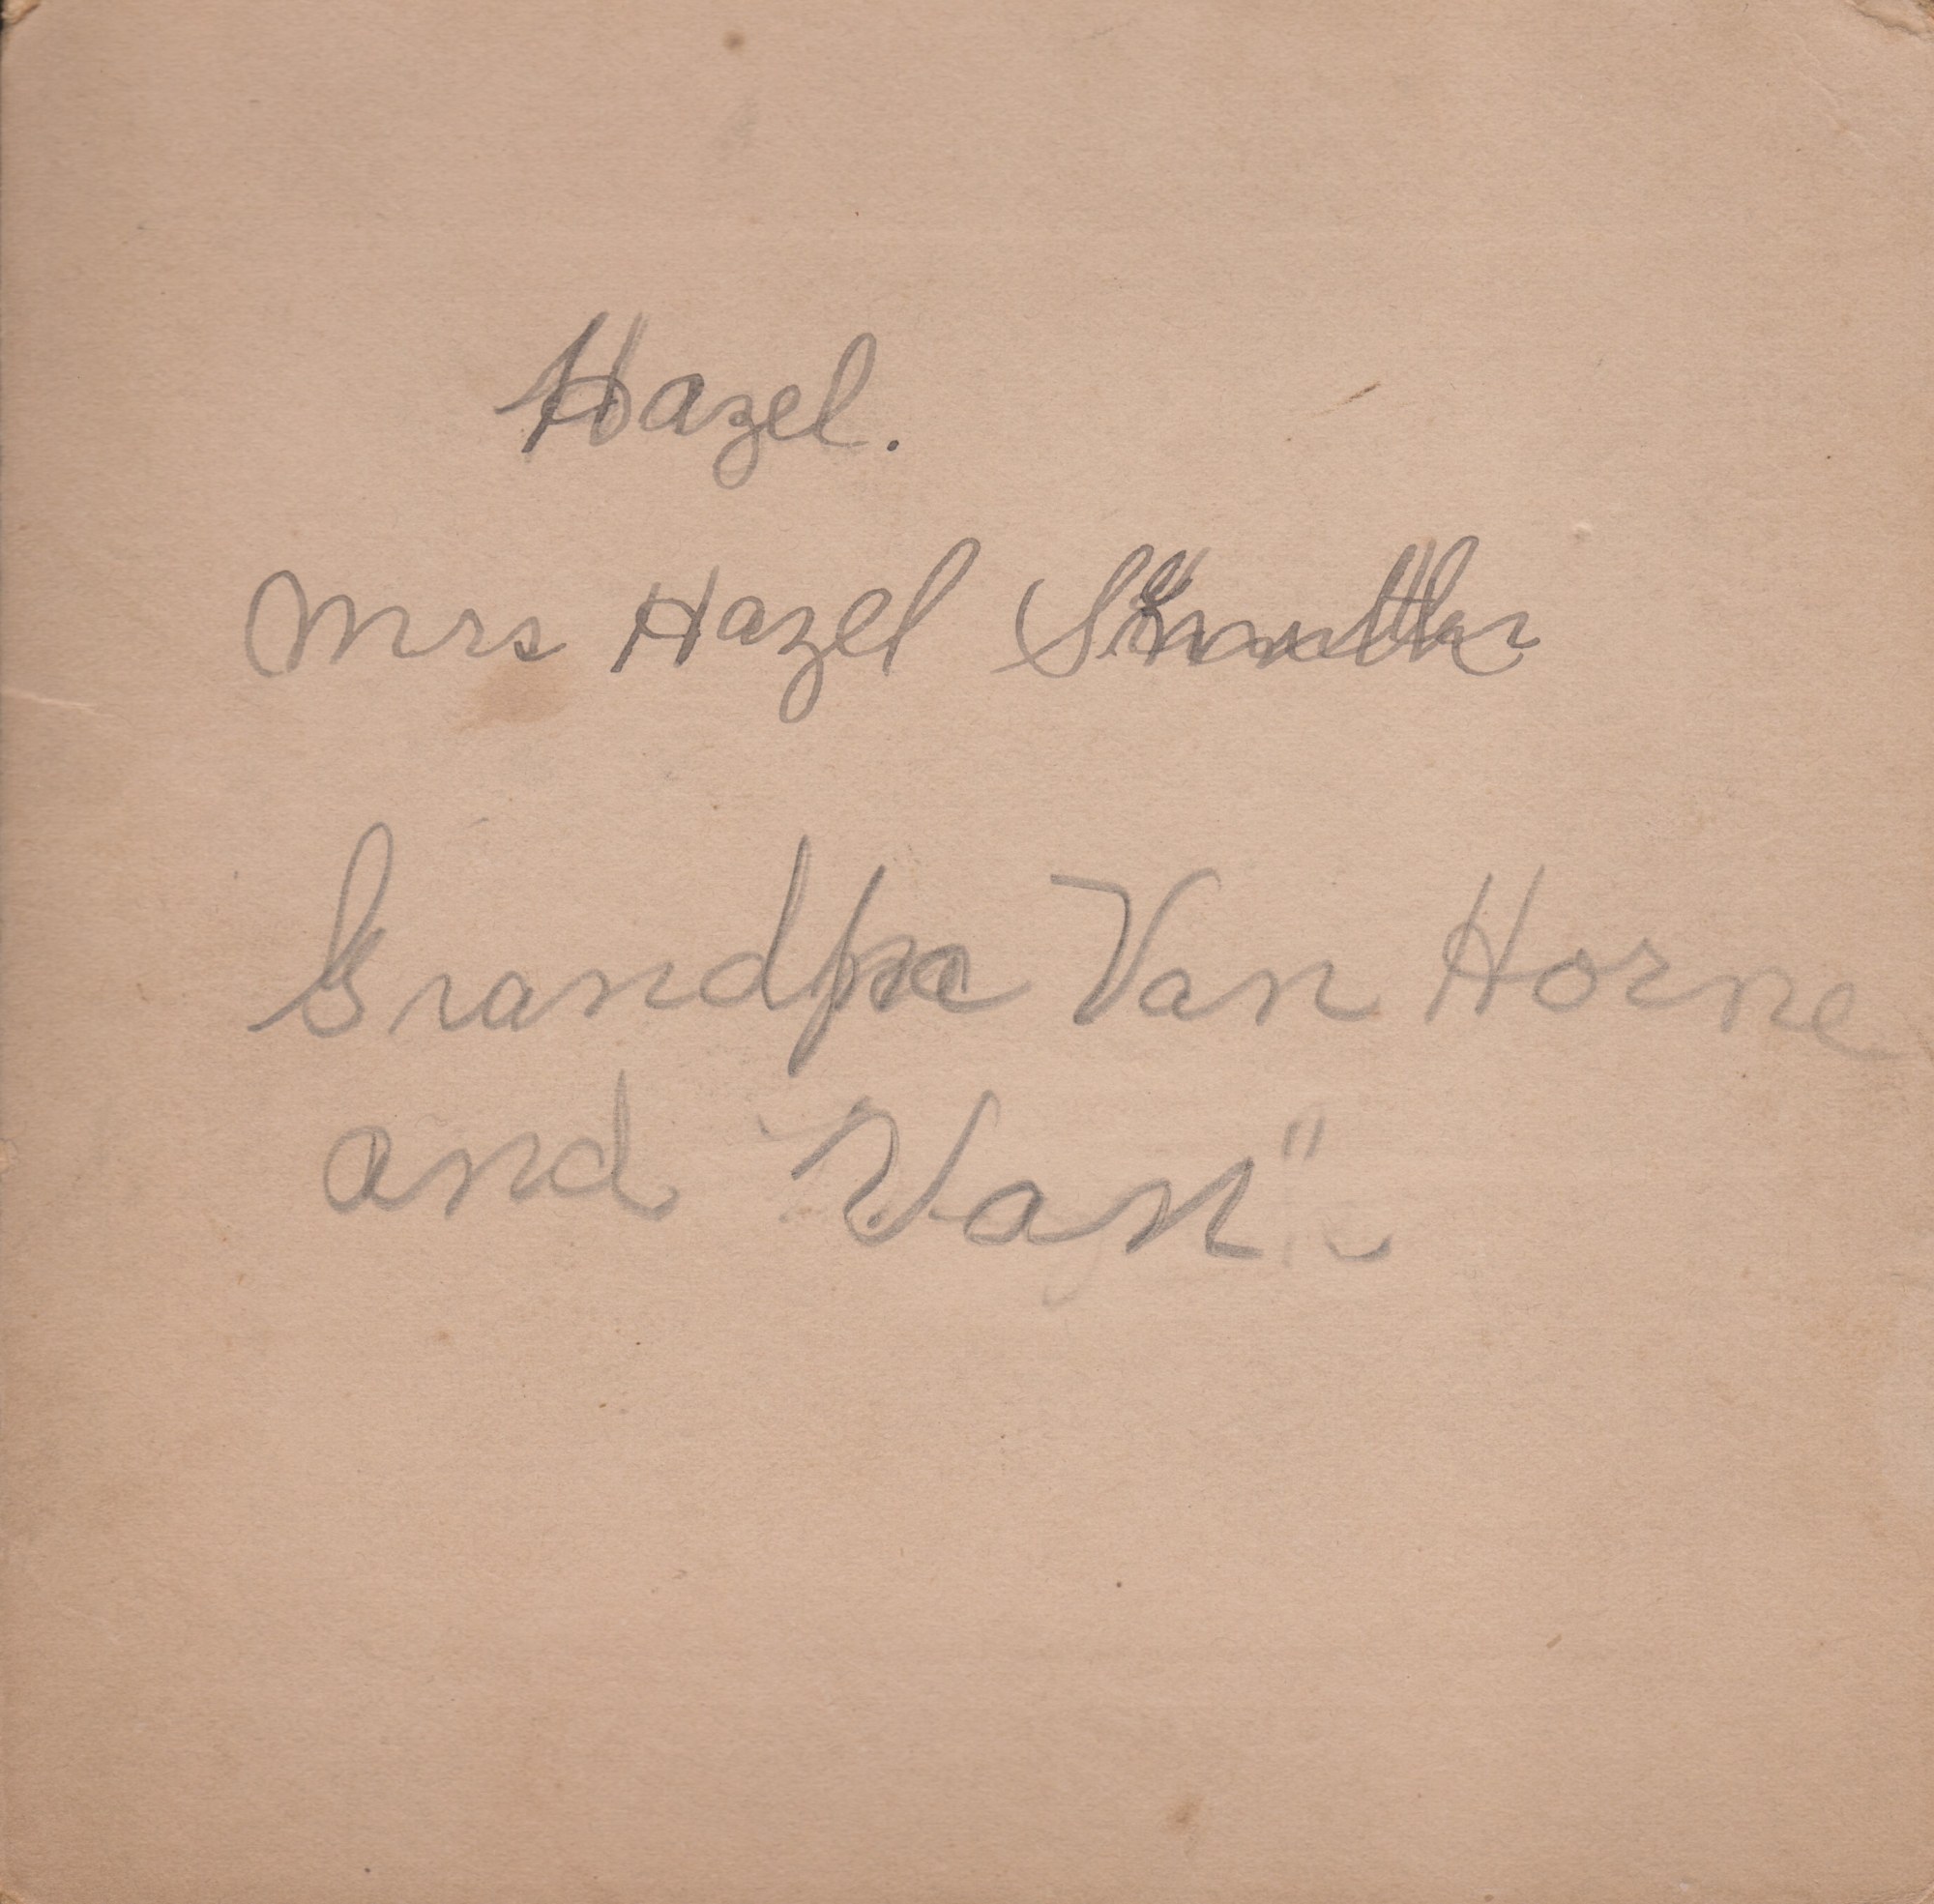 Hazel.
Mrs Hazel
Grandpa Van Horne
and "Van"